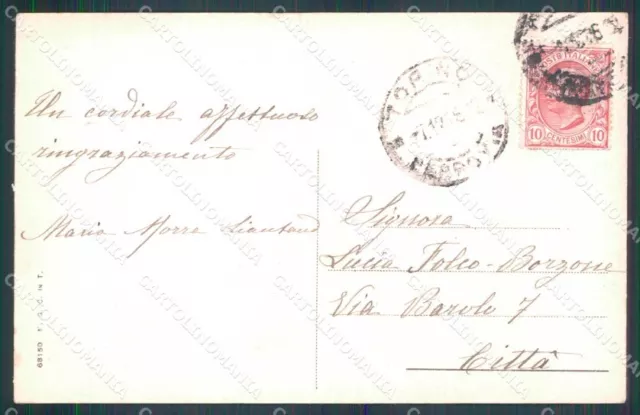 Un cordiale affettuoso
ringraziamento
Maria Morra
TORINO
FERROVIA
POSTE ITALIANE
10 CENTESIMI 10
Signora
Lucia Folco-Borzone
Via Barolo 7
Città
68150
IN T.
CARTOLINOMANIA